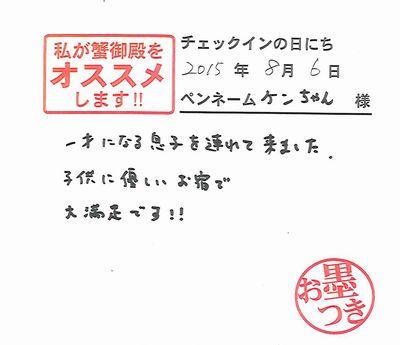 私が蟹御殿を
オススメ
します!!
チェックインの日にち
2015 年 8 月 6 日
ペンネーム ケンちゃん 様
一才になる息子を連れて来ました.
子供に優しいお宿で
大満足です!!
お墨つき